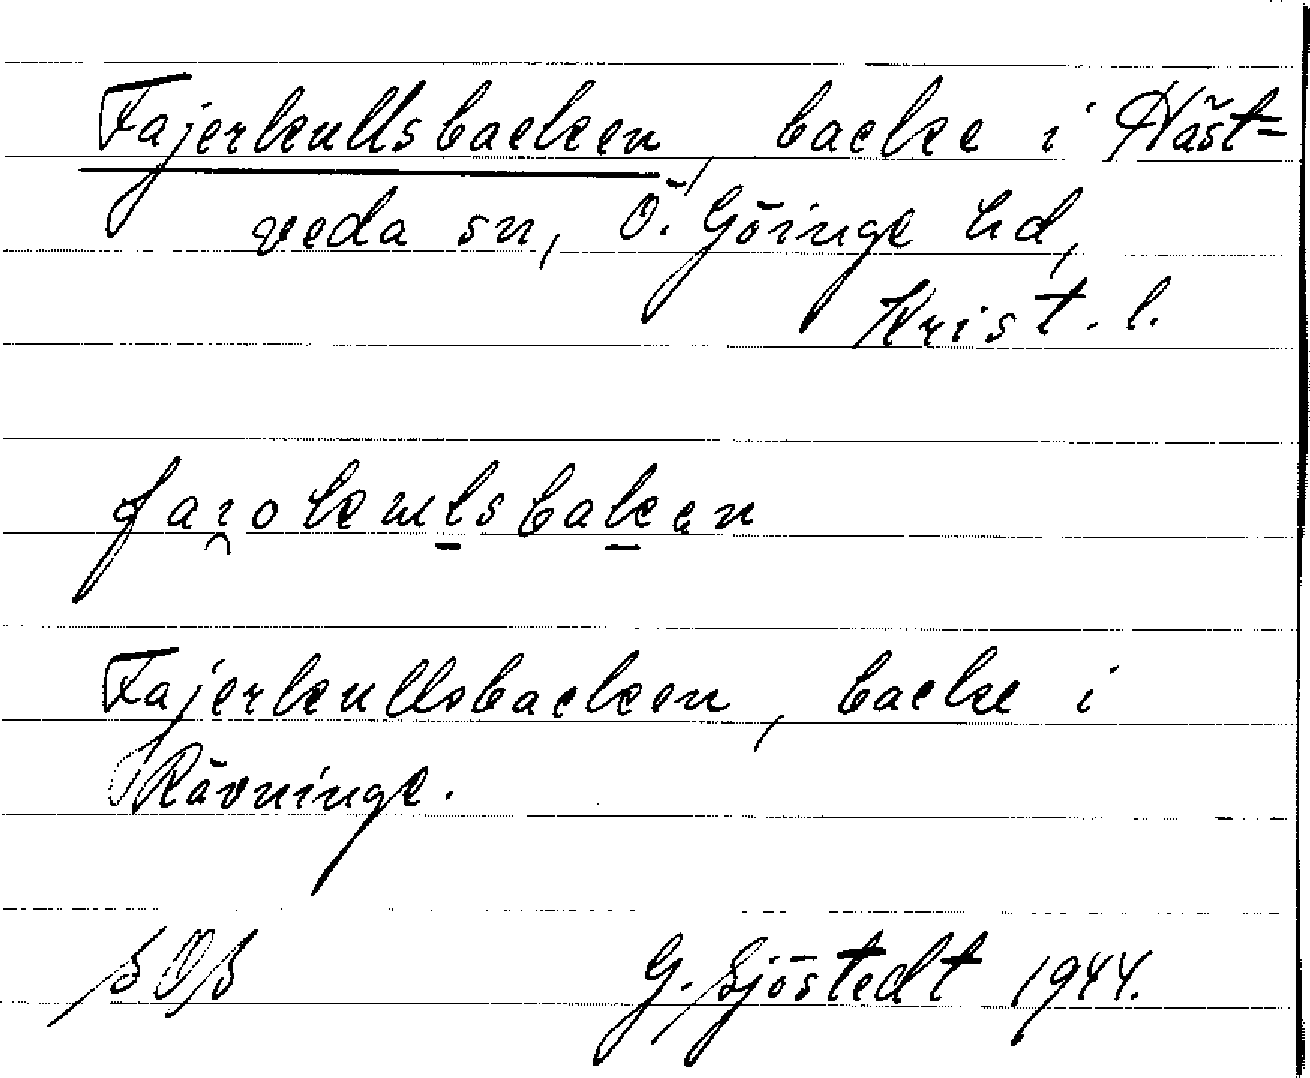 Fajerkullsbacken, backe i Häst=
veda sn, Ö. Göinge hd,
Krist. l.
faı̯okuḻsbaḵen
Fajerkullsbacken, backe i
Rävninge.
SOS
G. Sjöstedt 1944.